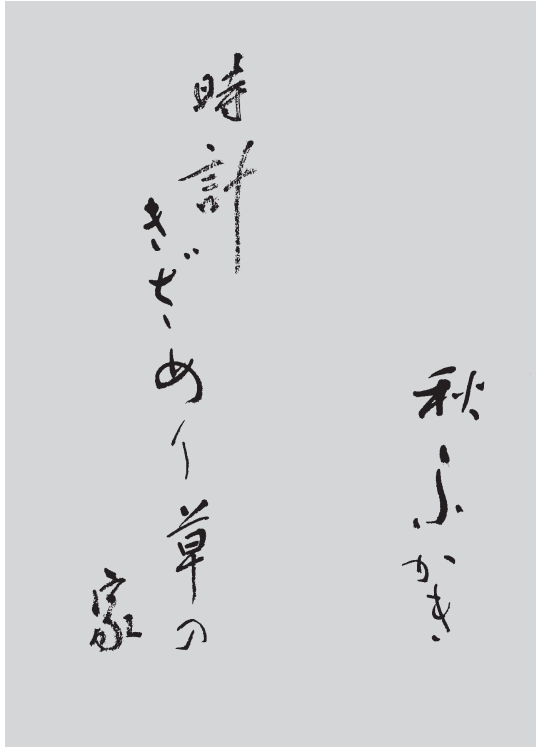 秋ふかき
時計きざめり草の
家